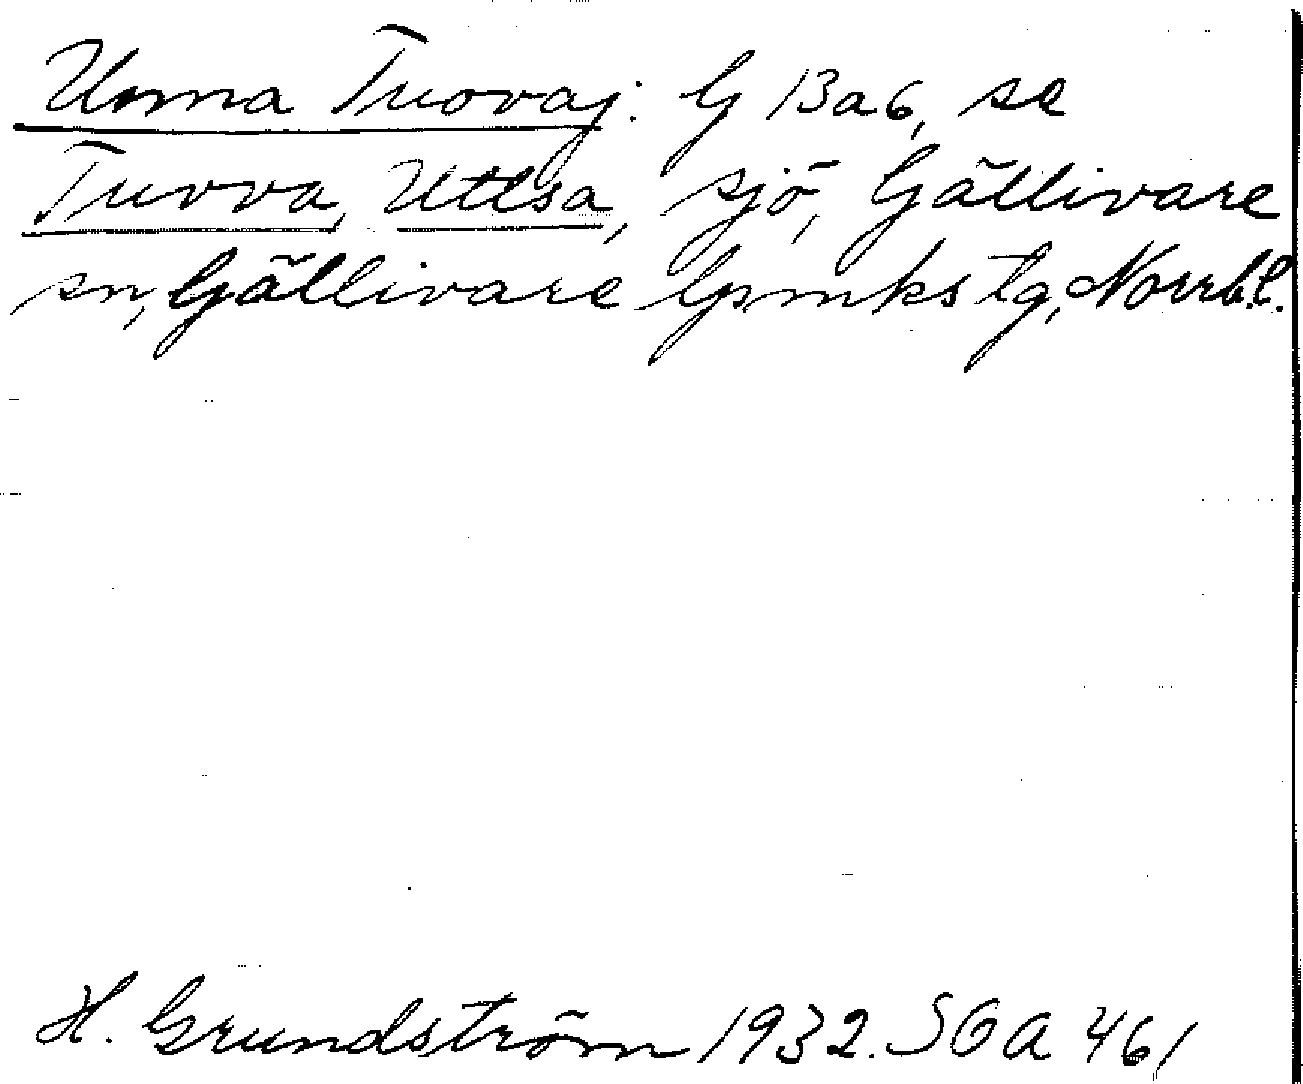 Unna Tuovaj: G 13a6, se
Tuvva, Utlsa, sjö, Gällivare
sn, Gällivare lpmks tg, Norrb.l.
H. Grundström 1932. SOA 461